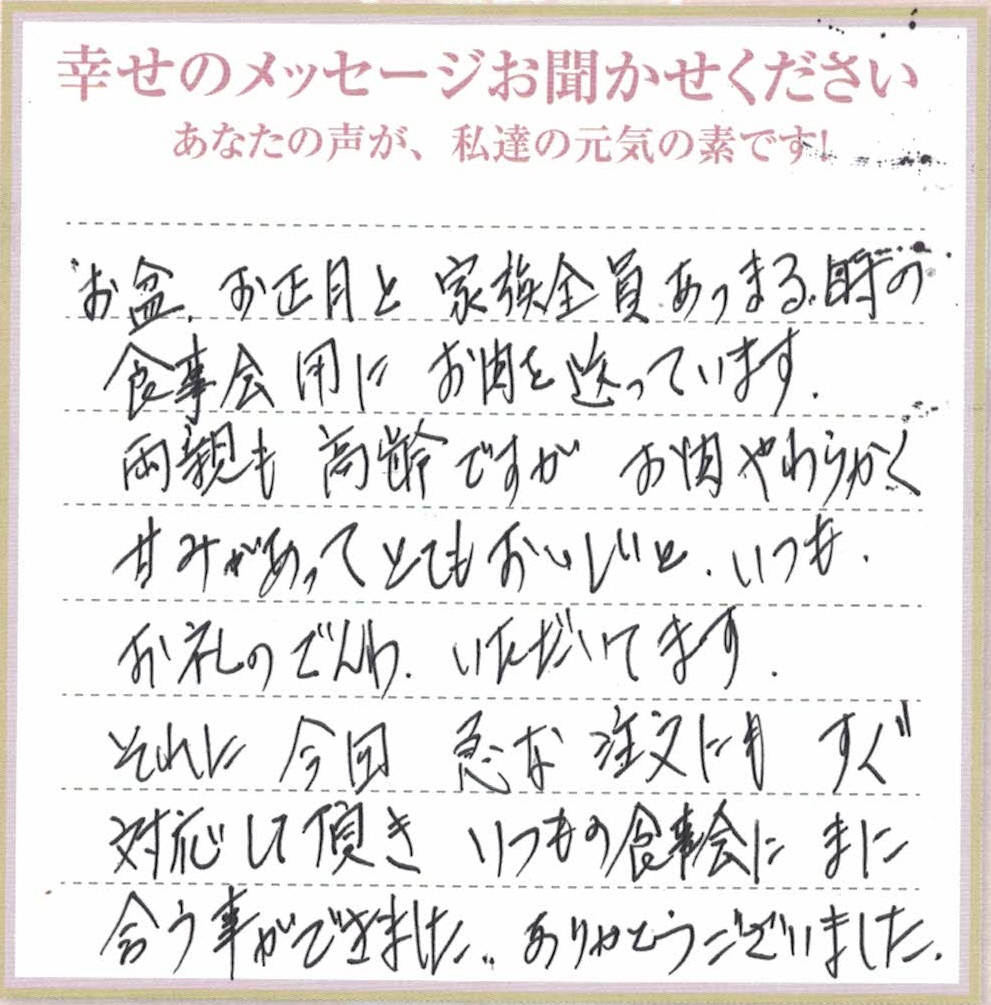 幸せのメッセージお聞かせください
あなたの声が、私達の元気の素です!
お盆、お正月と 家族全員あつまる時の
食事会用に お肉を送っています.
両親も 高齢ですが お肉やわらかく
甘みがあってとてもおいしいと.いつも.
お礼のでんわ.いただいてます.
それに 今回 急な 注文にも すぐ
対応して頂き いつもの食事会に まに
合う事ができました.. ありがとうございました.